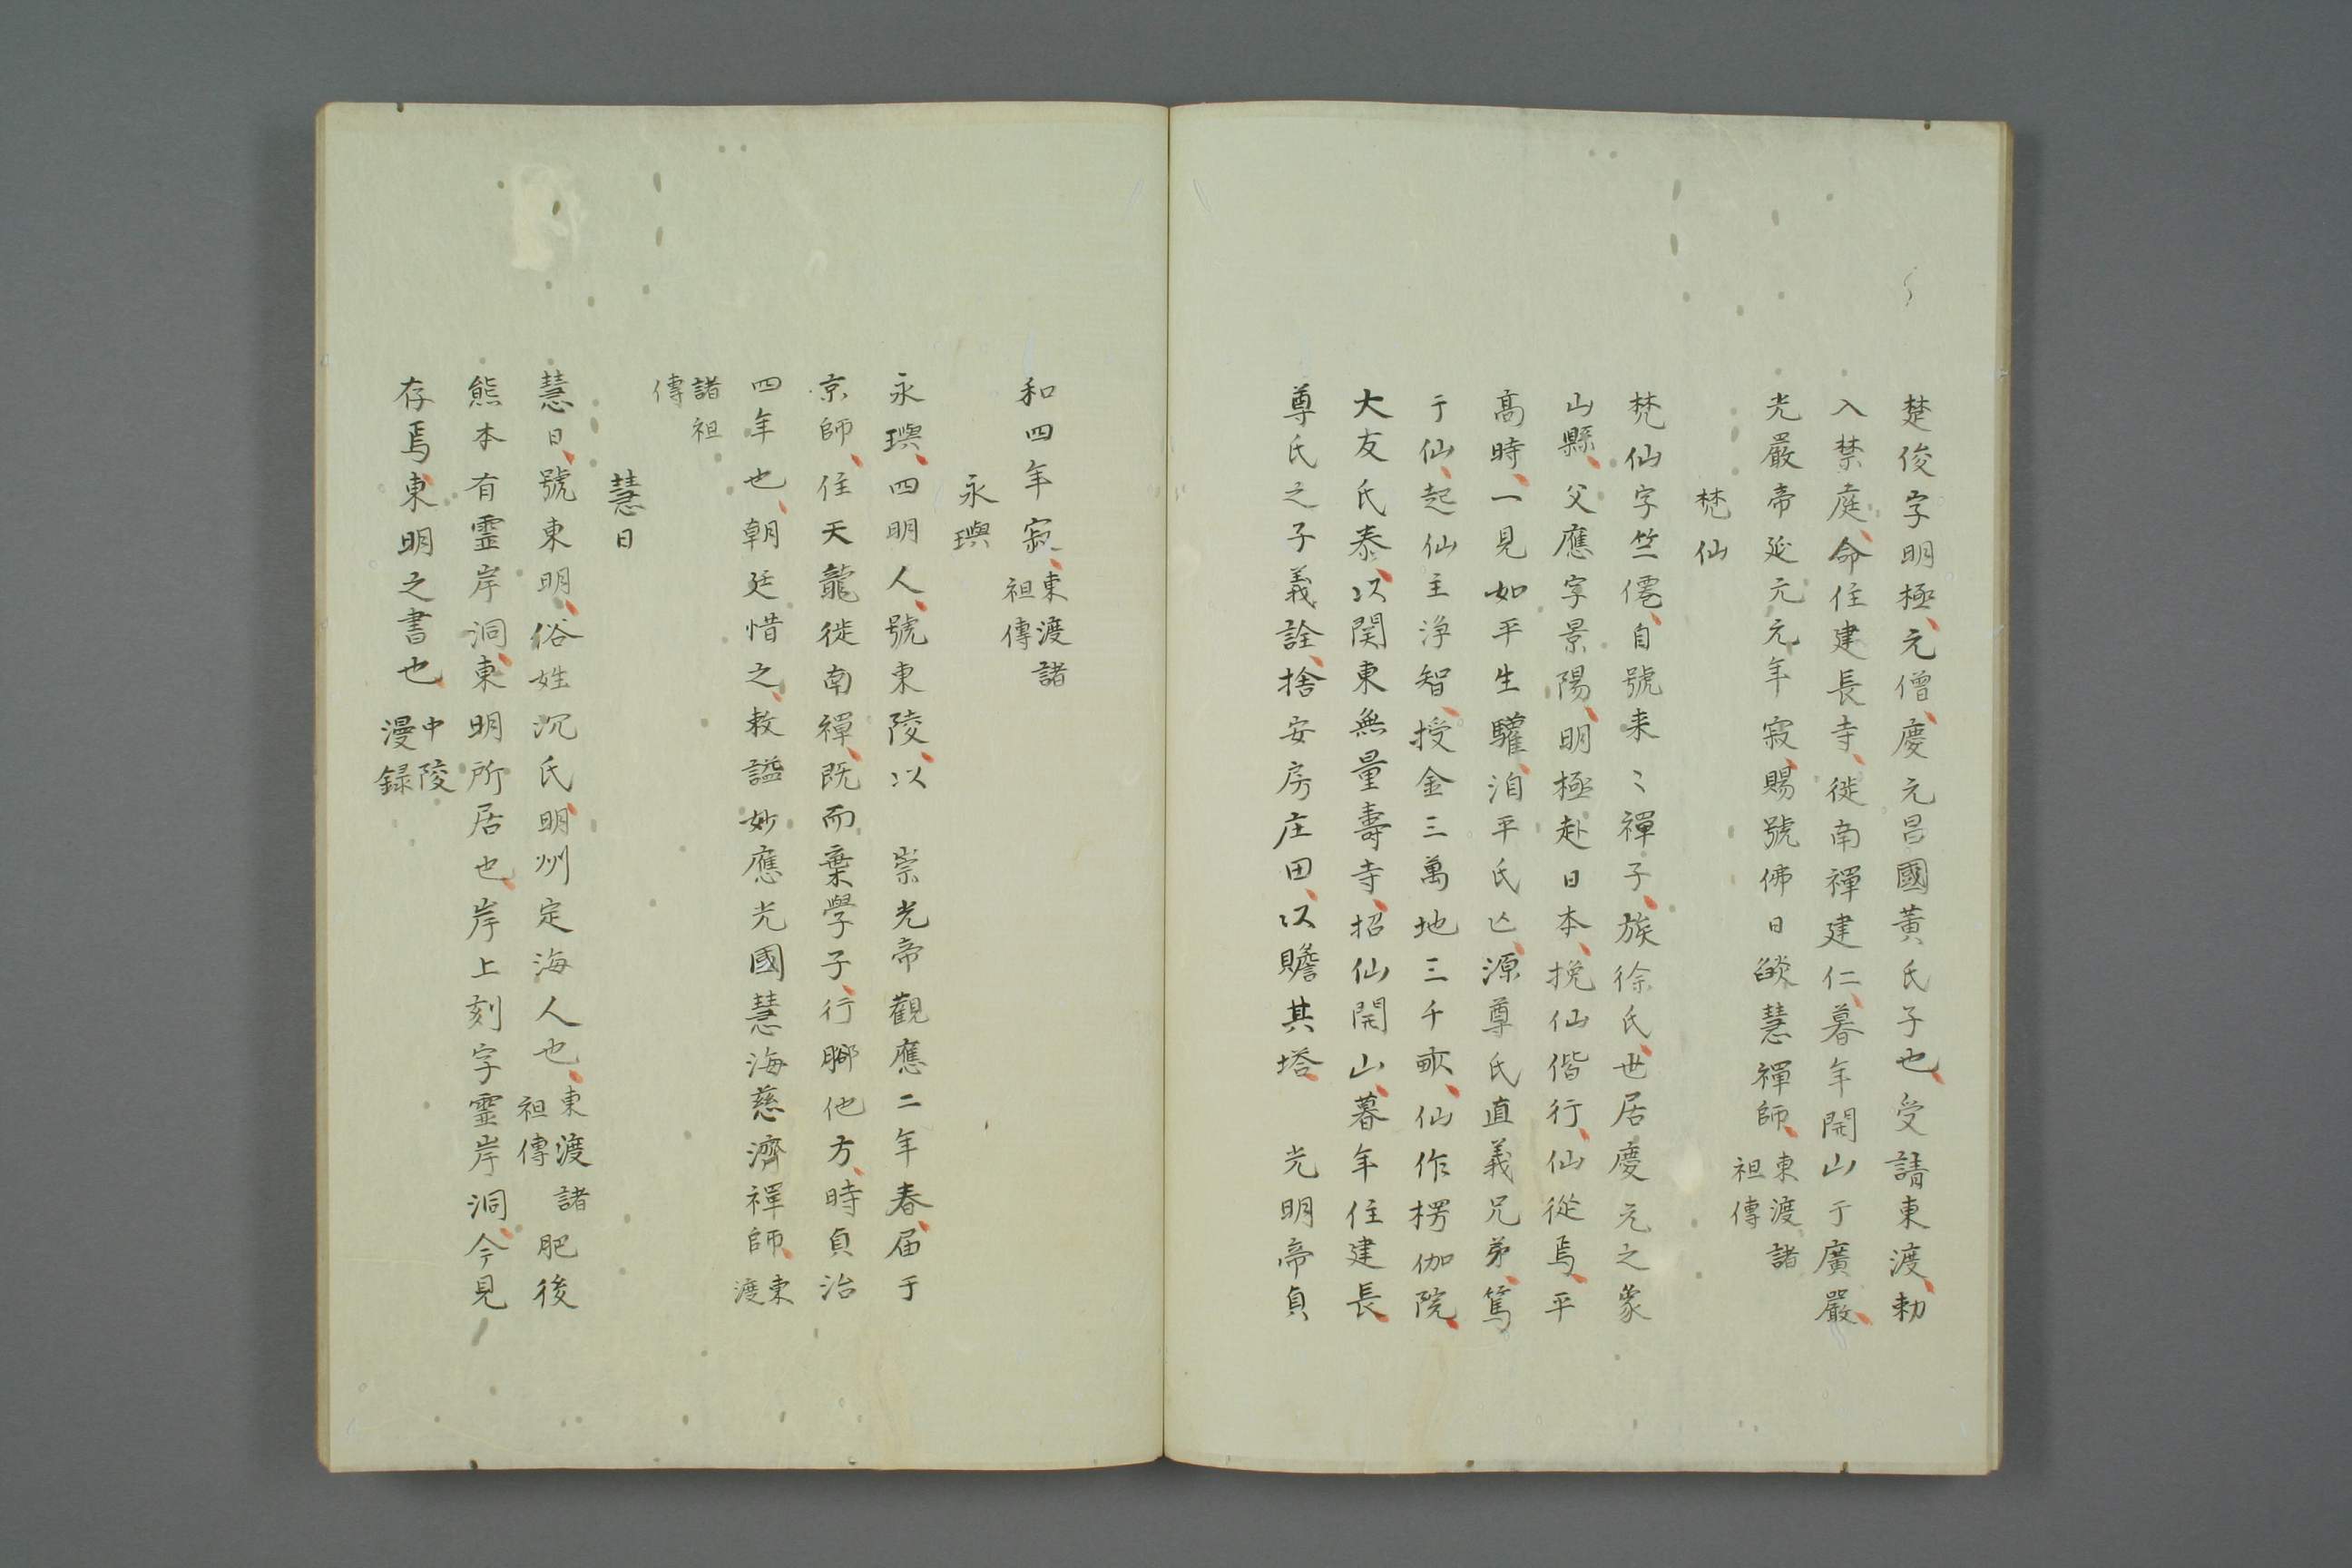 楚俊字明極、元僧、慶元昌國黃氏子也、受請東渡、勅
入禁庭、命住建長寺、徙南禪建仁、暮年開山于廣嚴、
光嚴帝延元元年寂、賜號佛日燄慧禪師、東渡諸
祖傳
梵仙
梵仙字竺僊、自號来〻禪子、族徐氏、世居慶元之象
山縣、父應字景陽、明極赴日本、挽仙偕行、仙從焉、平
高時、一見如平生驩、洎平氏亡、源尊氏直義兄弟、篤
于仙、起仙主淨智、授金三萬地三千畝、仙作楞伽院、
大友氏泰、以関東無量壽寺、招仙開山、暮年住建長、
尊氏之子義詮、捨安房庄田、以贍其塔、　光明帝貞
和四年寂、東渡諸
祖傳
永璵
永璵、四明人、號東陵、以　崇光帝觀應二年春、届于
京師、住天龍徙南禪、既而棄學子、行腳他方、時貞治
四年也、朝廷惜之、敕謚妙應光國慧海慈濟禪師、東
渡
諸祖
傳
慧日
慧日、號東明、俗姓沉氏、明州定海人也、東渡諸
祖傳
肥後
熊本有霊岸洞、東明所居也、岸上刻字霊岸洞、今見
存焉、東明之書也、中陵
漫録